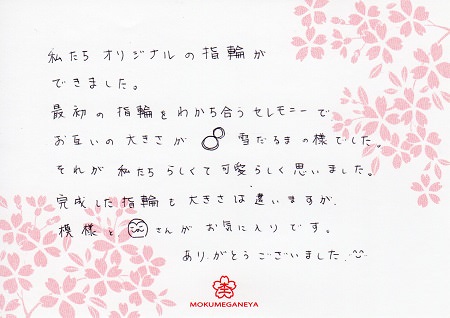 私たち オリジナルの指輪が
できました。
最初の指輪をわかち合うセレモニーで
お互いの大きさが 雪だるまの様でした。
それが私たちらしくて可愛らしく思いました。
完成した指輪も大きさは違いますが、
模様と さんがお気に入りです。
ありがとうございました
MOKUMEGANEYA